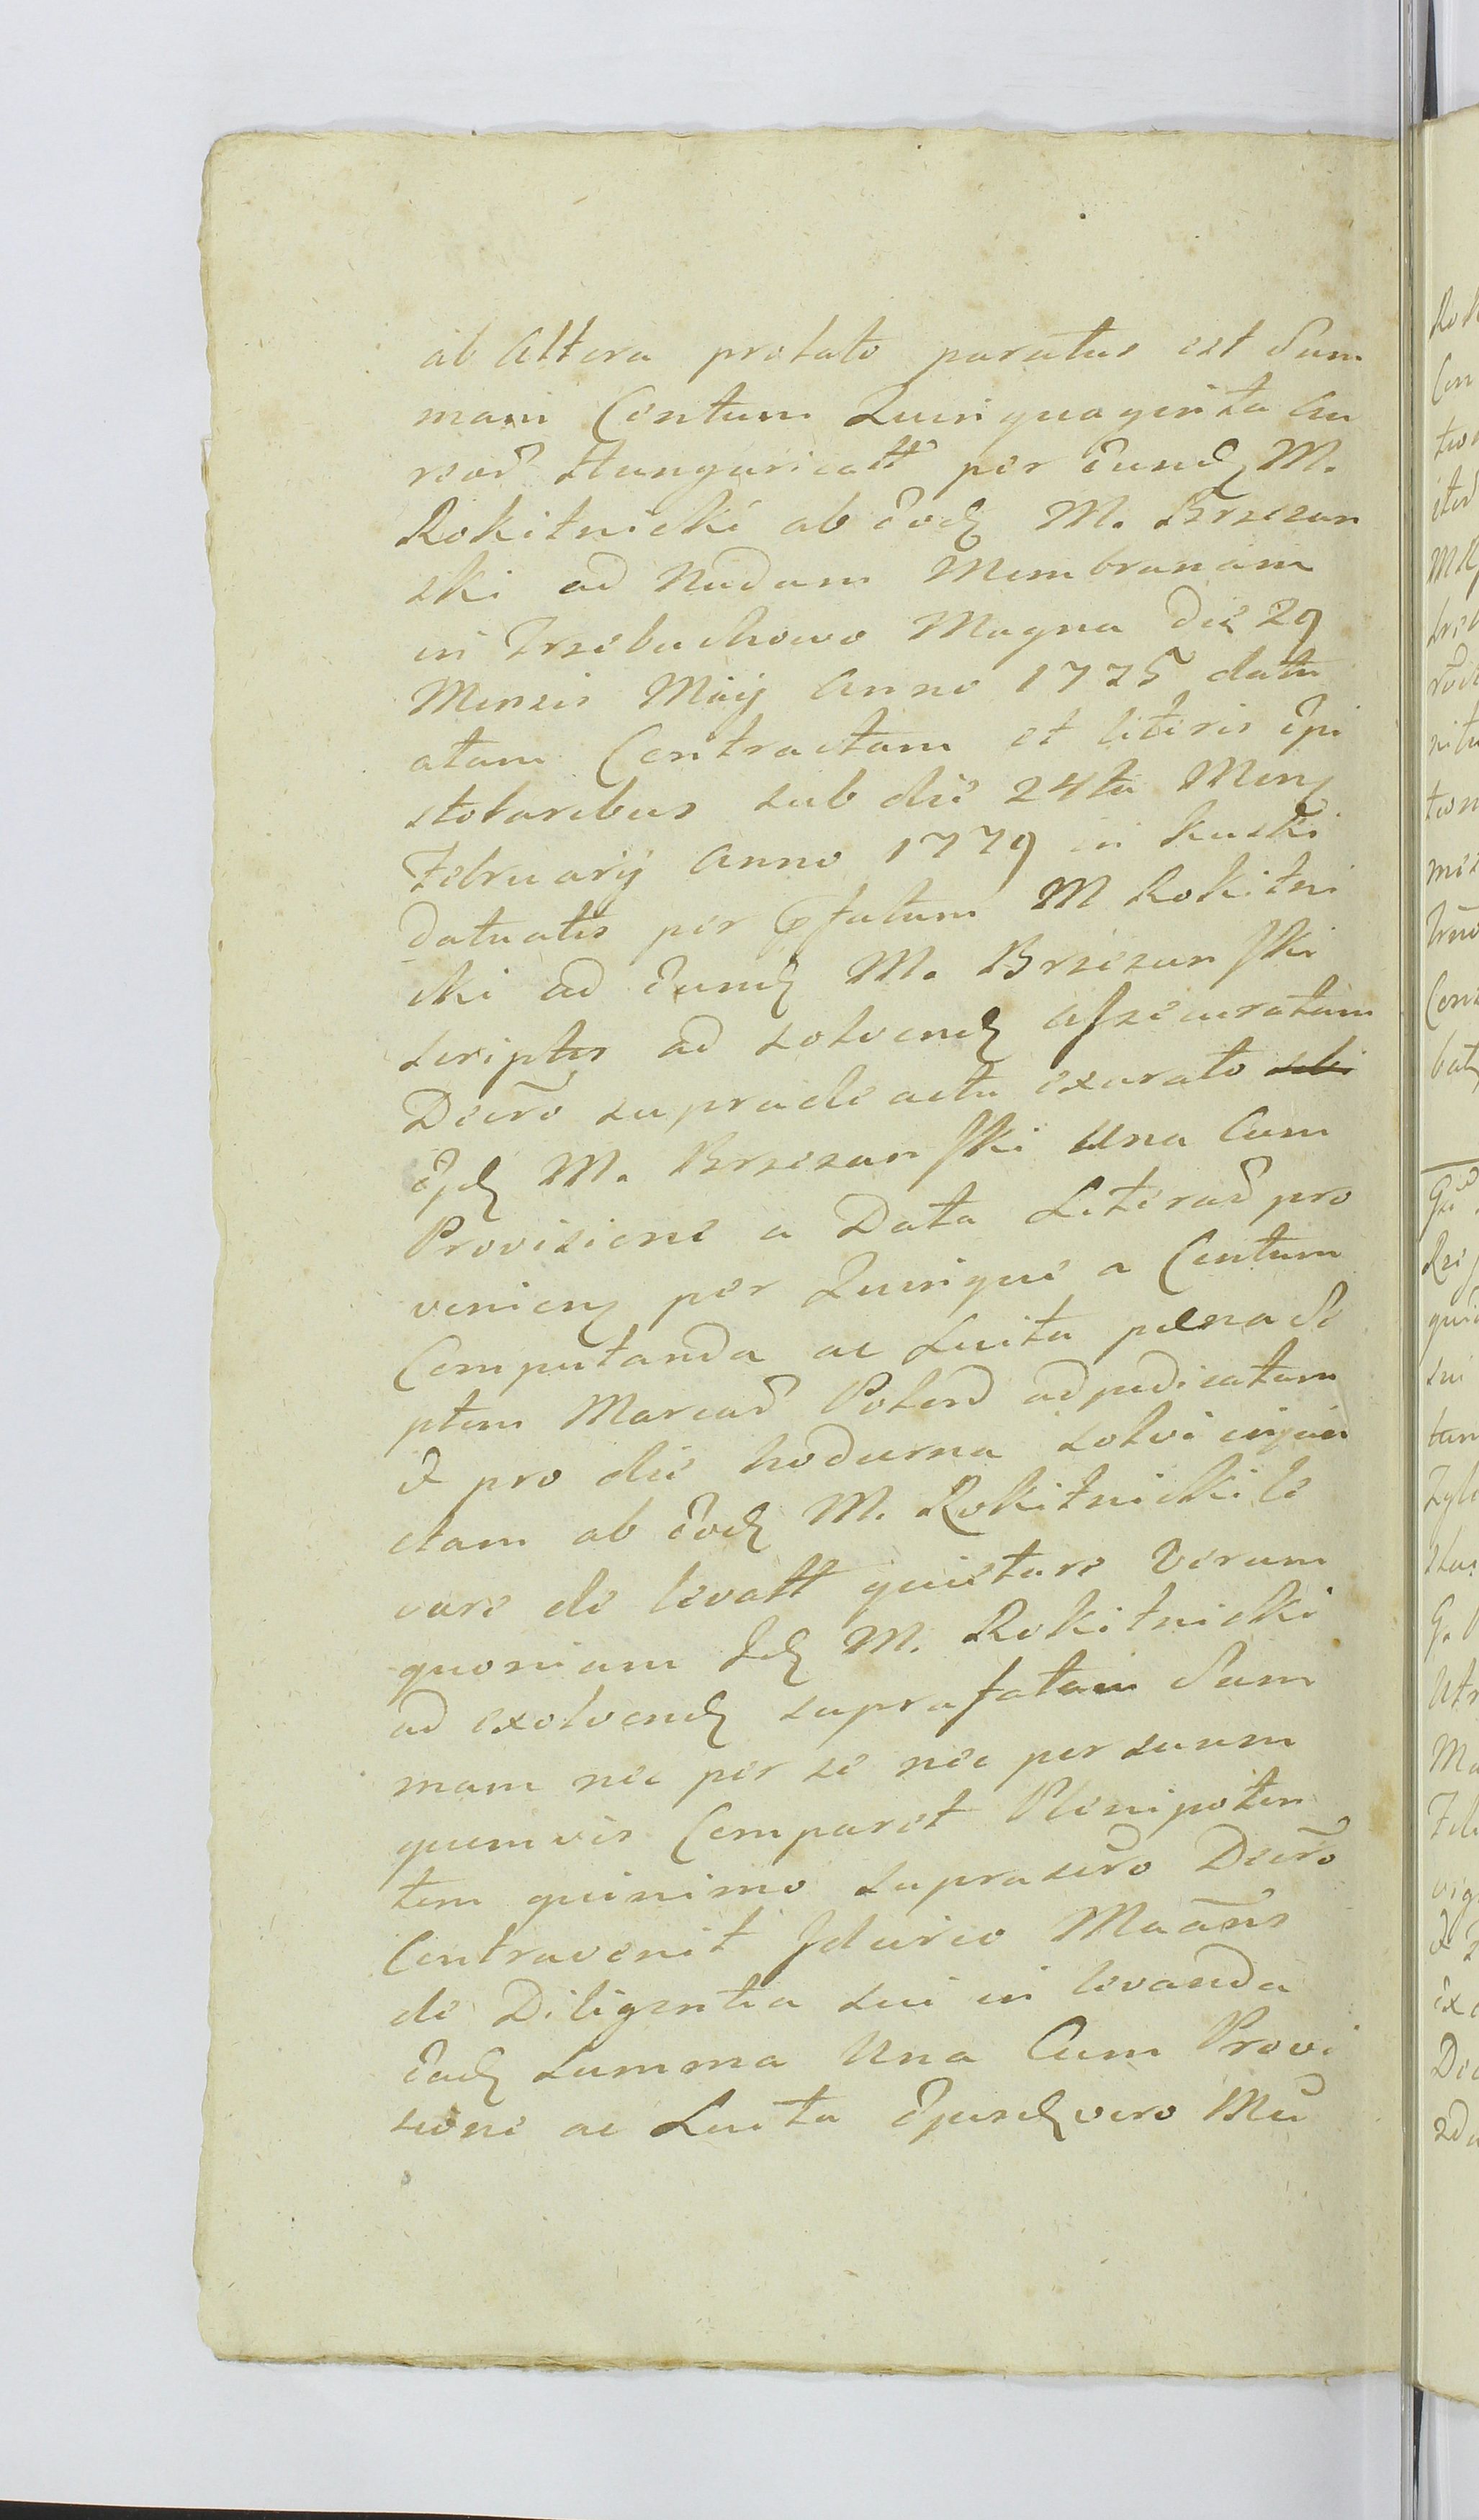 ab Altera prolato paratus est Sum
mam Centum Quinquaginta Au
reor̃ Hungaricall per Eund M.
Rokitnicki ab Eod M. Brzezan
ski ad Nudam Membranam
in Trzebuchowo Magna die 29
Mensis Maij Anno 1775 datu
atam Contractam et literis Epi
stolaribus sub die 24ta Mens
February Anno 1779 in
datuatis per fatum M Rokitni
cki ad Eund M. Brzezanski
scriptis ad solvend assecuratam
Decro supra de actu exarato
M. Brzezanski Una Cum
Provisione a Data Literar̃ pro
venien per Quinque a Centum
Computanda ac Luita pæna Se
ptem Marcar̃ Polon adjudicatam
& pro die hodierna solvi injun
ctam ab Eod M. Rokitnicki le
vare de levatt quietare Verum
quoniam Id M. Rokitnicki
ad exolvend suprafatam Sum
mam nec per se nec per suum
quemvis Comparet Plenipoten
tem quinimo suprascro Decro
Contravenit Idcirco
de Diligentia sui in levanda
Ead Summa Una Cum Provi
sione ac Luita Ejusd vero